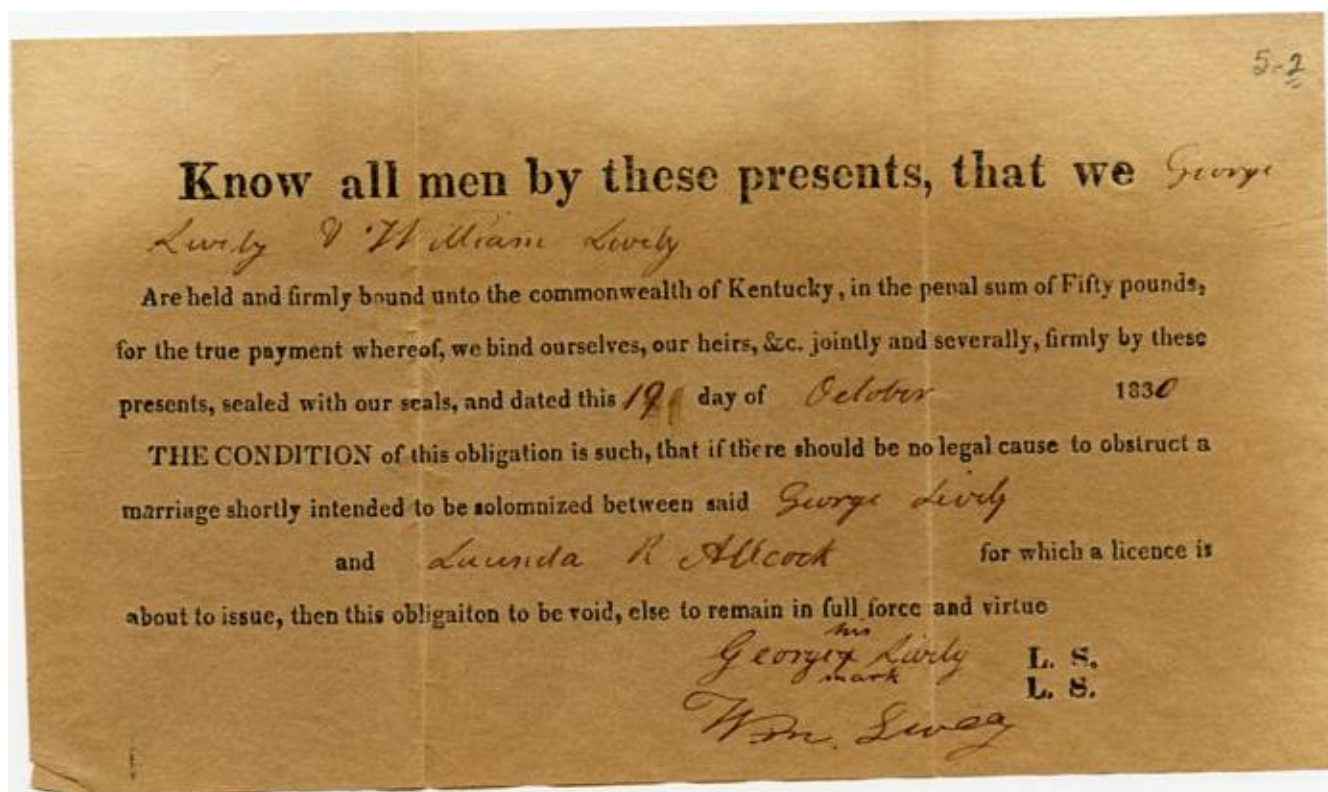 5-2
Know all men by these presents, that we George
Lively & William Lively
Are held and firmly bound unto the commonwealth of Kentucky, in the penal sum of Fifty pounds,
for the true payment whereof, we bind ourselves, our heirs, &c. jointly and severally, firmly by these
presents, sealed with our seals, and dated this 19 day of October 1830
THE CONDITION of this obligation is such, that if there should be no legal cause to obstruct a
marriage shortly intended to be solomnized between said George Lively
and R Allcock for which a licence is
about to issue, then this obligaiton to be void, else to remain in full force and virtue
his
George x Lively L. S.
mark
L. S.
Wm. Lively